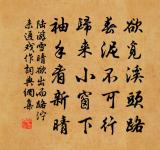 欲覓溪頭路
春泥不可行
歸來小窗下
袖手看新晴
陸游雪晴欲出而路泞
未通戲作詞典網集